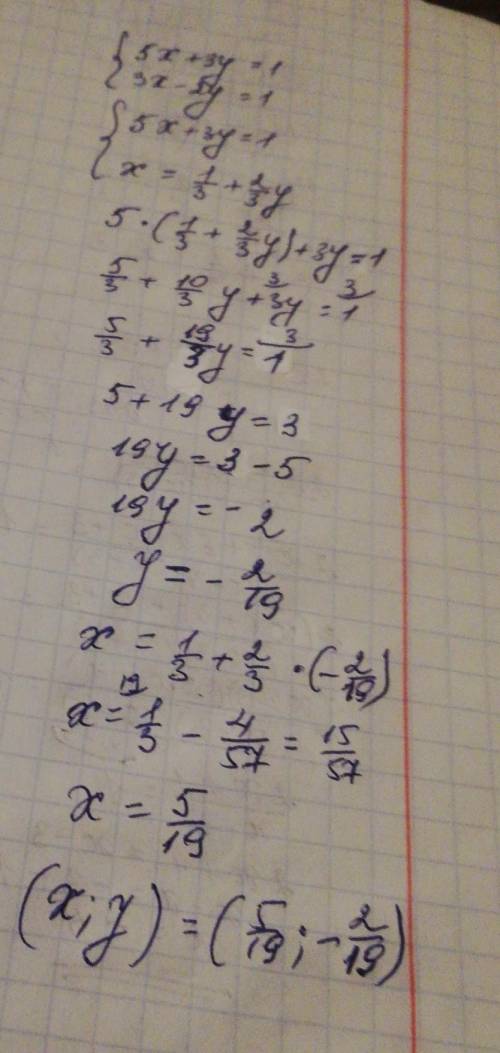 { 5x + 3y = 1
3x - 2y = 1
{ 5x + 3y = 1
x = 1/3 + 2/3 y
5 · (1/3 + 2/3 y) + 3y = 1
5/3 + 10/3 y + 3/ 3y = 3/ 1
5/3 + 19/3 y = 3/ 1
5 + 19 y = 3
19y = 3 - 5
19y = - 2
y = - 2/19
x = 1/3 + 2/3 · (- 2/19)
x = 19/ 1/3 - 4/57 = 15/57
x = 5/19
(x; y) = (5/19; - 2/19)